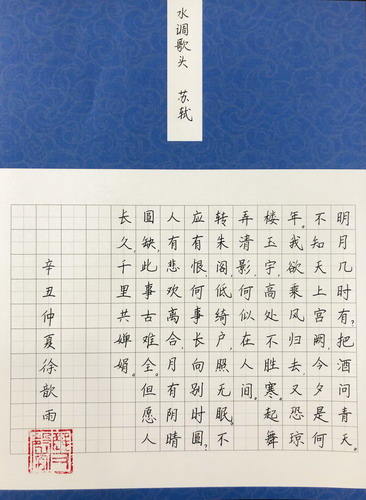 水调歌头 苏轼
明月几时有,把酒问青天。
不知天上宫阙,今夕是何
年。我欲乘风归去,又恐琼
楼玉宇,高处不胜寒。起舞
弄清影,何似在人间。
转朱阁,低绮户,照无眠。不
应有恨,何事长向别时圆?
人有悲欢离合,月有阴晴
圆缺,此事古难全。但愿人
长久,千里共婵娟。
辛丑仲夏徐歆雨